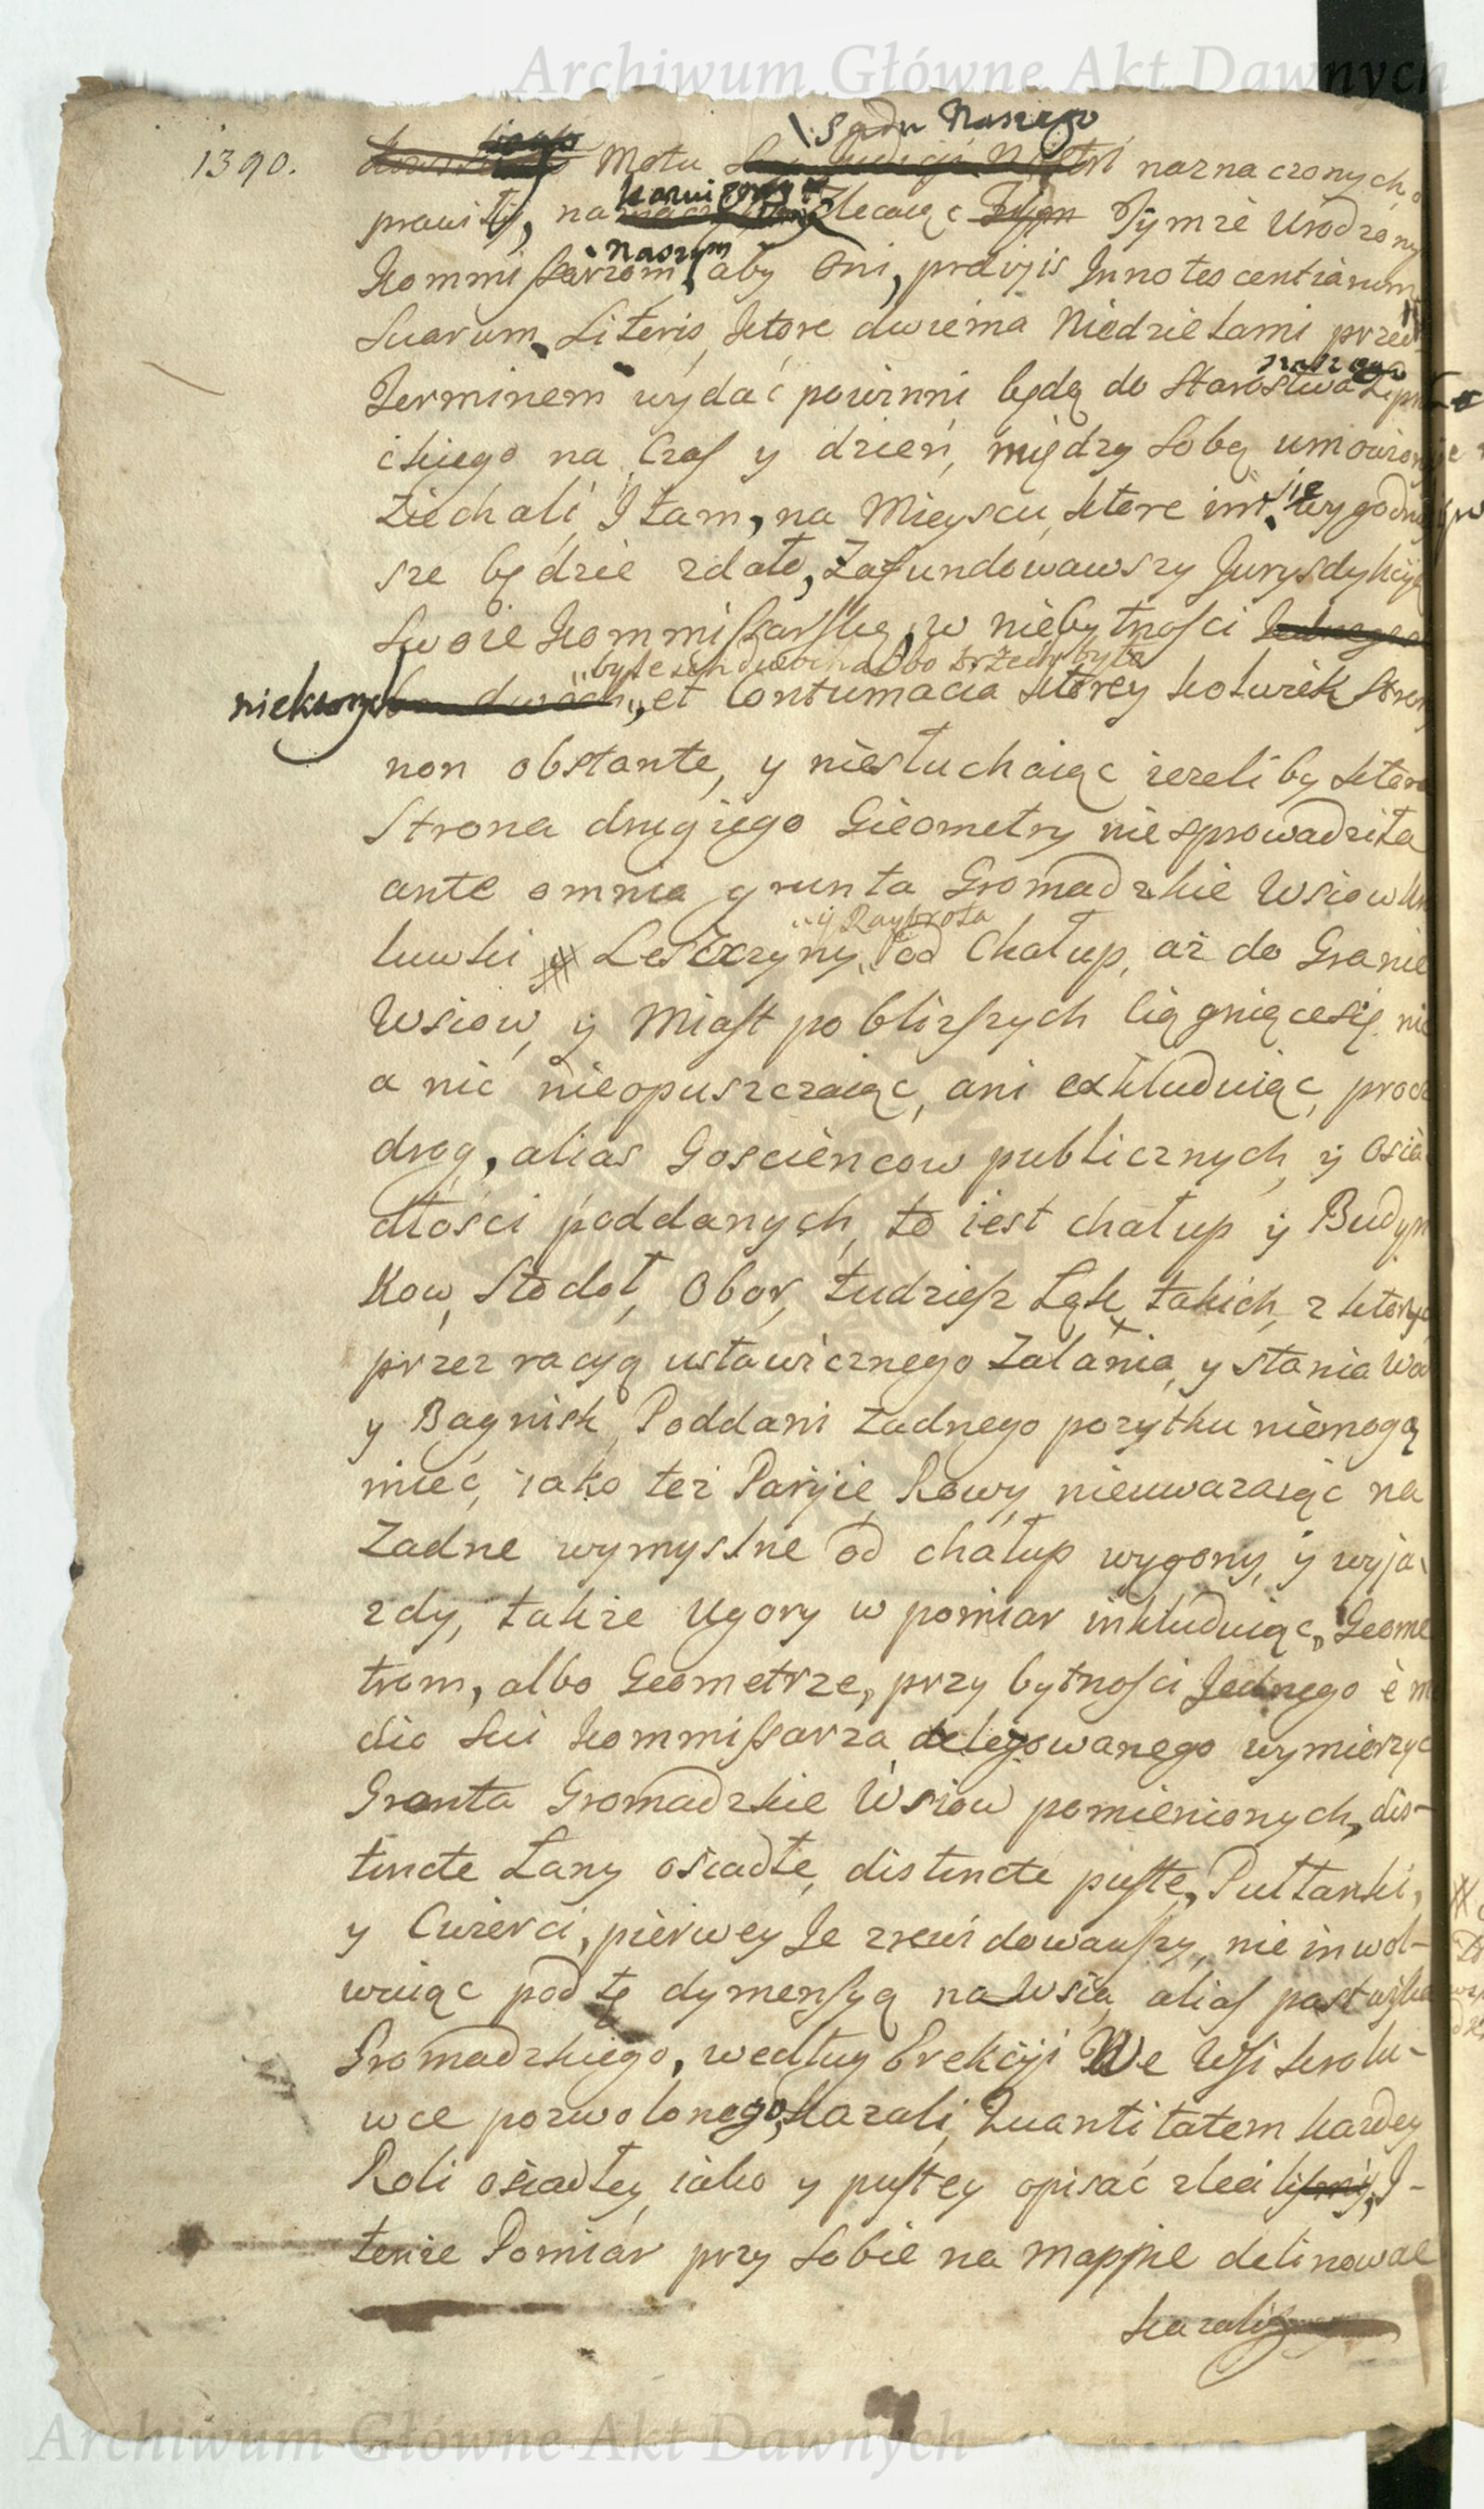 Archiwum Główne Akt Dawnych
\ Sądu Naszego
1390. Motu naznaczonych
prawiły, na zlecaiąc Tymże Urodzony
naszym
Kommissarzom, aby Oni, prævijs Innotescentiarum
Suarum Literis, ktore dwiema Niedzielami przed
naszego
Terminem wydać powinni będą do Starostwa Lipni
ckiego na Czas y dzień, między Sobą umowiony
Ziechali, I tam, na Mieyscu, ktore im się wygodniey
sze będzie zdało, Zafundowawszy Jurysdykcyę
Swoie Kommissarską, w niebytności Jednego
byle ich dwoch albo trzech było
niektorych et Contumacia ktorey kolwiek Strony
non obstante, y niesłuchaiąc ieżeliby ktora
Strona drugiego Gieometry niesprowadziła
ante omnia grunta Gromadzkie Wsiow Kro
y Rayprota
luwki Leszczyny, od Chałup, aż do Granic
Wsiow, y Miast poblizszych ciągniącesię nic
a nic nieopuszczaiąc, ani exkluduiąc, procz
drog, alias Goscieńcow publicznych, y Osia
dłości poddanych, to iest chałup y Budyn
kow, Stodoł, Obor, tudziesz Łąk takich, z ktory
przez racyą ustawicznego Zalania, y stania Wod
y Bagnisk, Poddani żadnego pożytku niemogą
mieć, iako też Paryie, Rowy, nieuważaiąc na
Zadne wymyslne od chałup wygony, y wyja
zdy, także Ugory w pomiar inkluduiąc, Geome
trom, albo Geometrze, przy bytności Jednego è me
dio Sui Kommissarza delegowanego wymierzyć
Gronta Gromadzkie Wsiow pomienionych, dis-
tincte Łany osiadłe, distincte puste, Pułłanki,
y Cwierci, pierwey Je zrewidowawszy, nie inwol-
wuiąc pod tę dymensyą nawsia, alias pastwiska
Gromadzkiego, według Erekcyi We Wsi Krolu-
wce pozwolonego, kazali, Quantitatem każdey
Roli osiadłey, iako y pustey opisać zlecili, I-
tenże Pomiar przy Sobie na mappie delinować
kazali
niektorych
Archiwum Główne Akt Dawnych